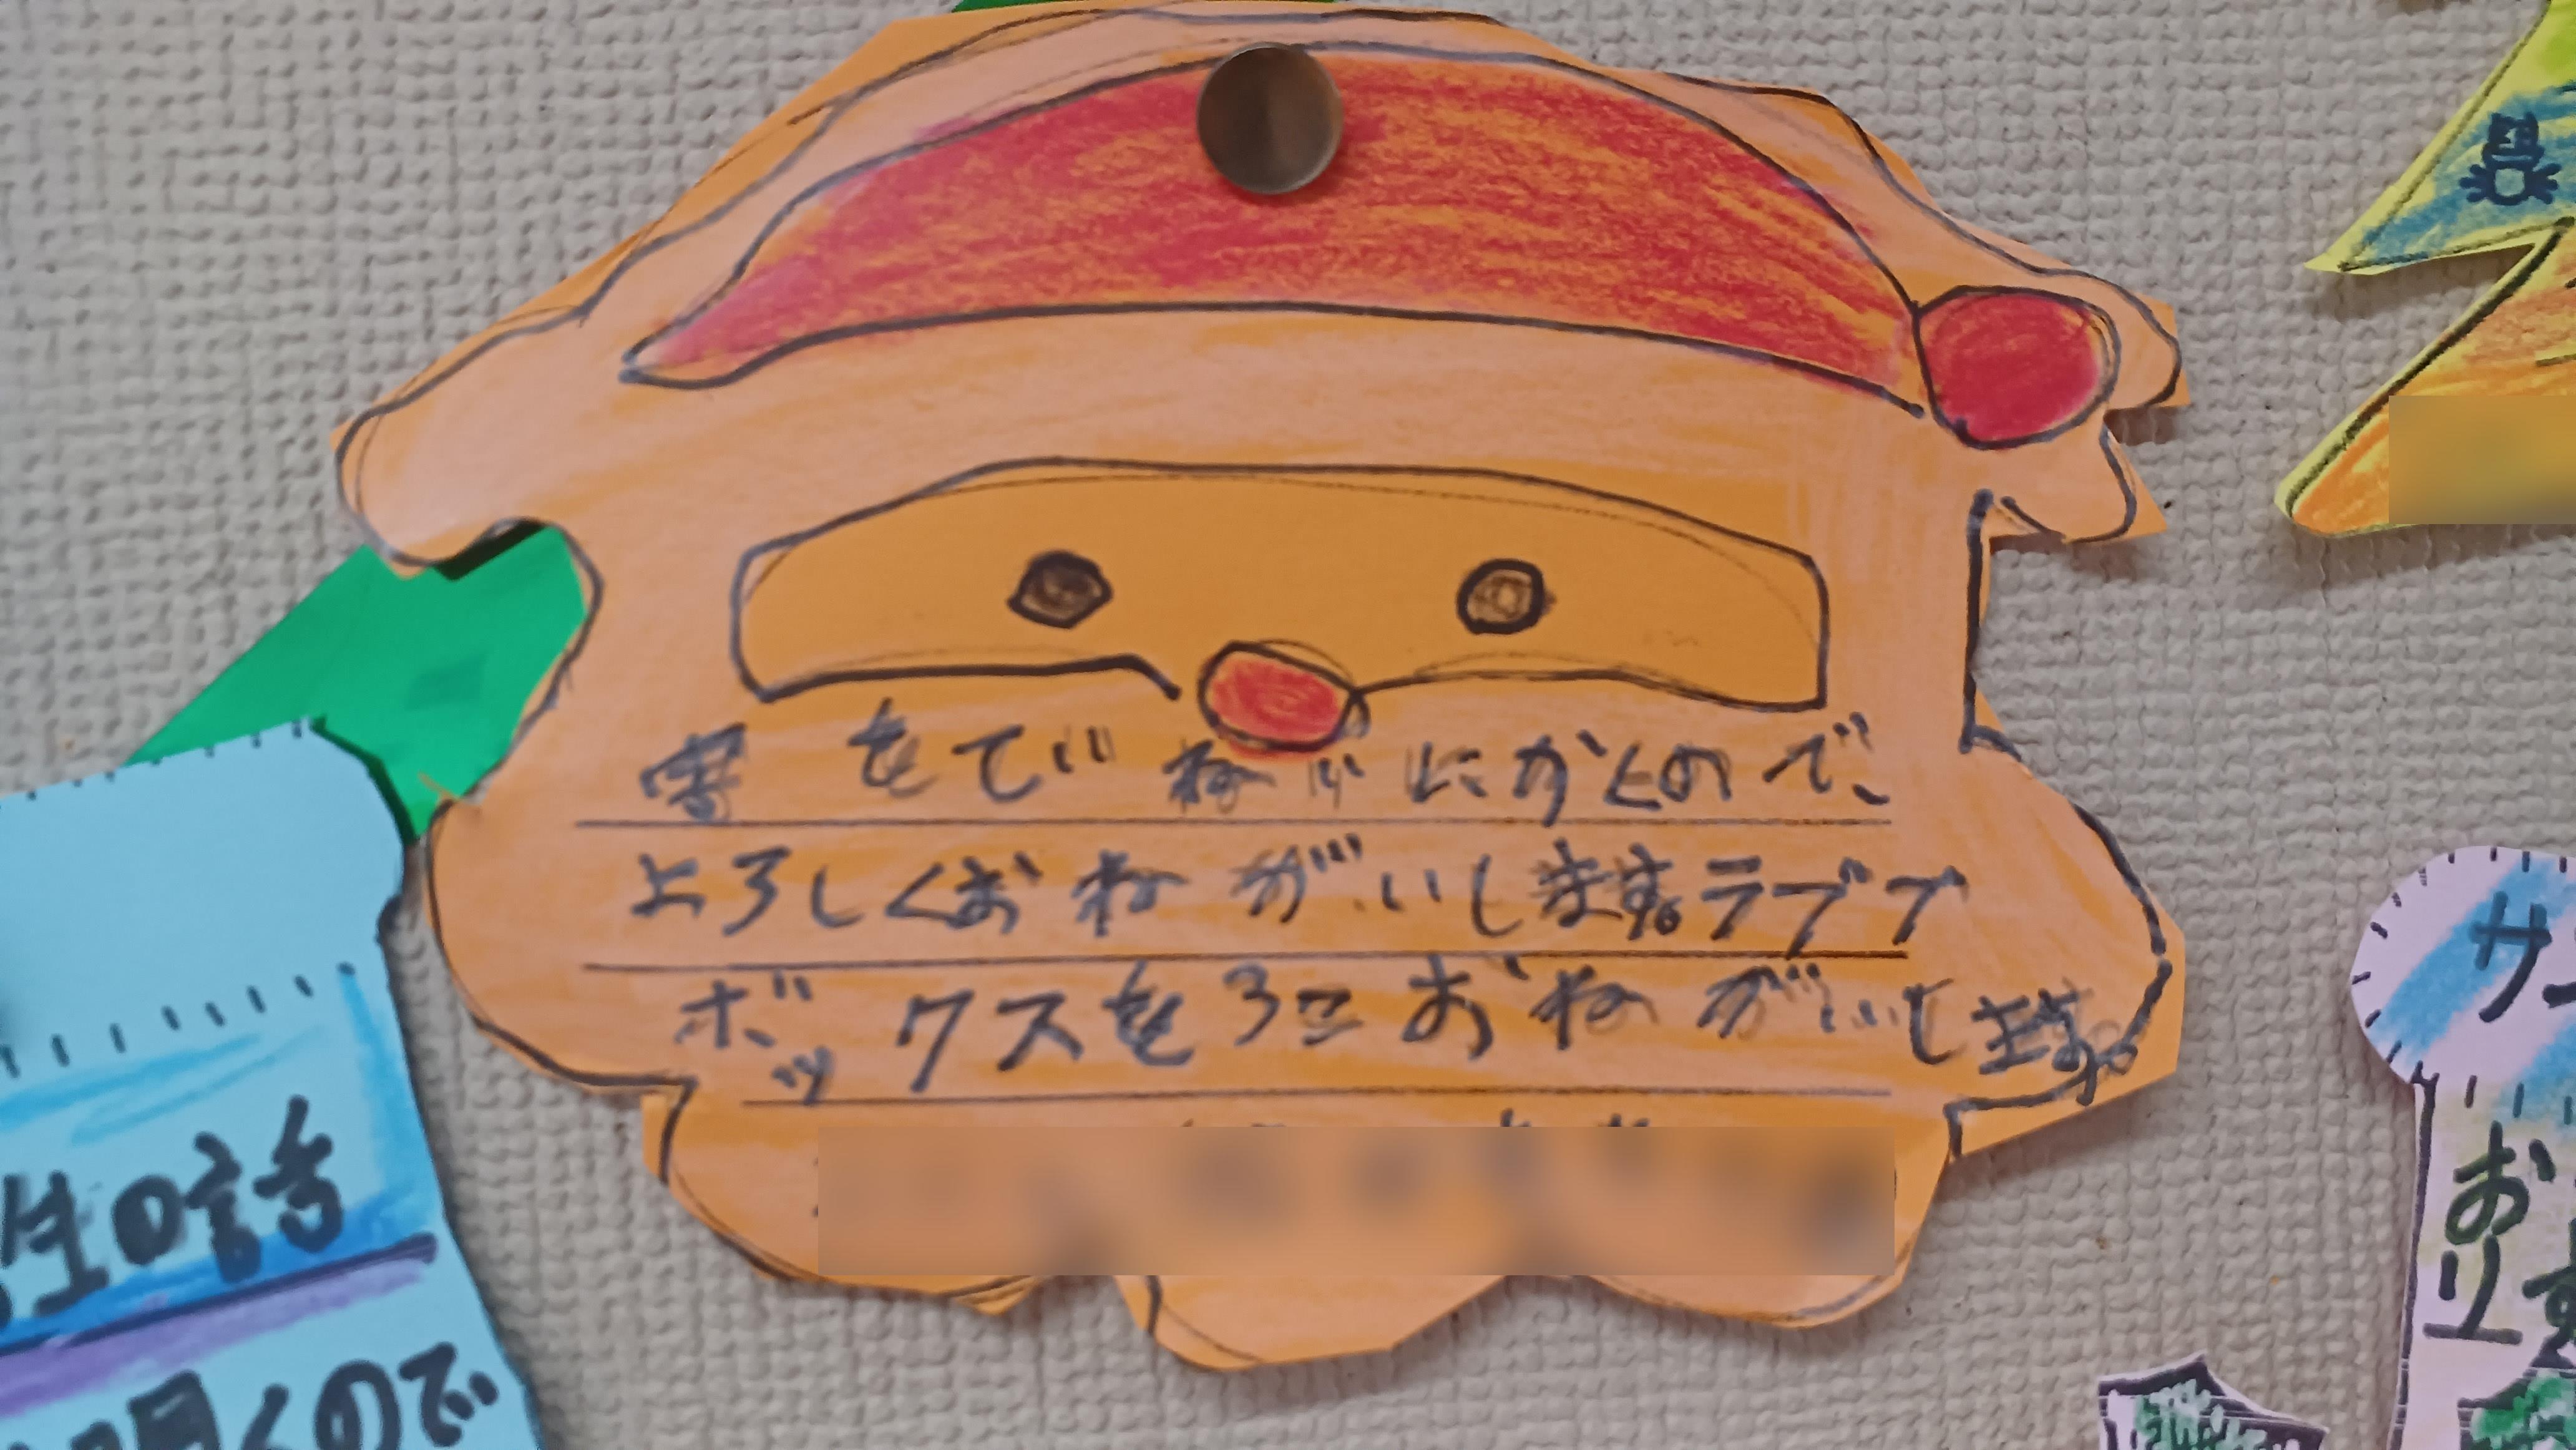 字をていねいにかくので、
よろしくおねがいします。ラブブ
ボックスを3コおねがいします。
生の話
聞くので
サ
お